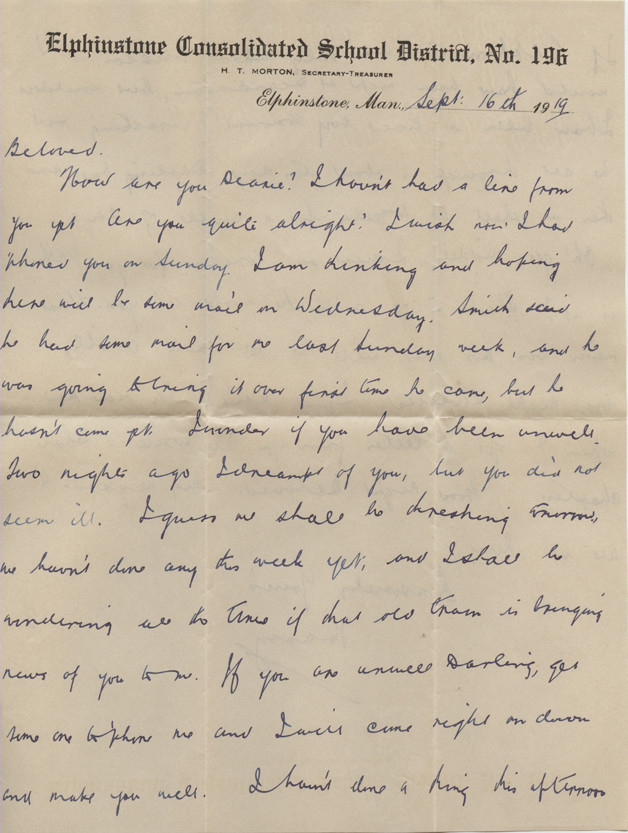 Elphinstone Consolidated School District, No. 196
H. T. MORTON, SECRETARY-TREASURER
Elphinstone, Man., Sept: 16th 1919
Beloved.
How are you Dearie? I havn't had a line from
you yet Are you quite alright? I wish now I had
'phoned you on Sunday. I am thinking and hoping
there will be some mail on Wednesday. Smith said
he had some mail for me last Sunday week, and he
was going to bring it over first time he came, but he
hasn't come yet. I wonder if you have been unwell.
Two nights ago I dreampt of you, but you did not
seem ill. I guess we shall be threshing tomorrow,
we havn't done any this week yet, and I shall be
wondering all the time if that old train is bringing
news of you to me. If you are unwell Darling, get
some one to 'phone me and I will come right on down
and make you well. I havn't done a thing this afternoon